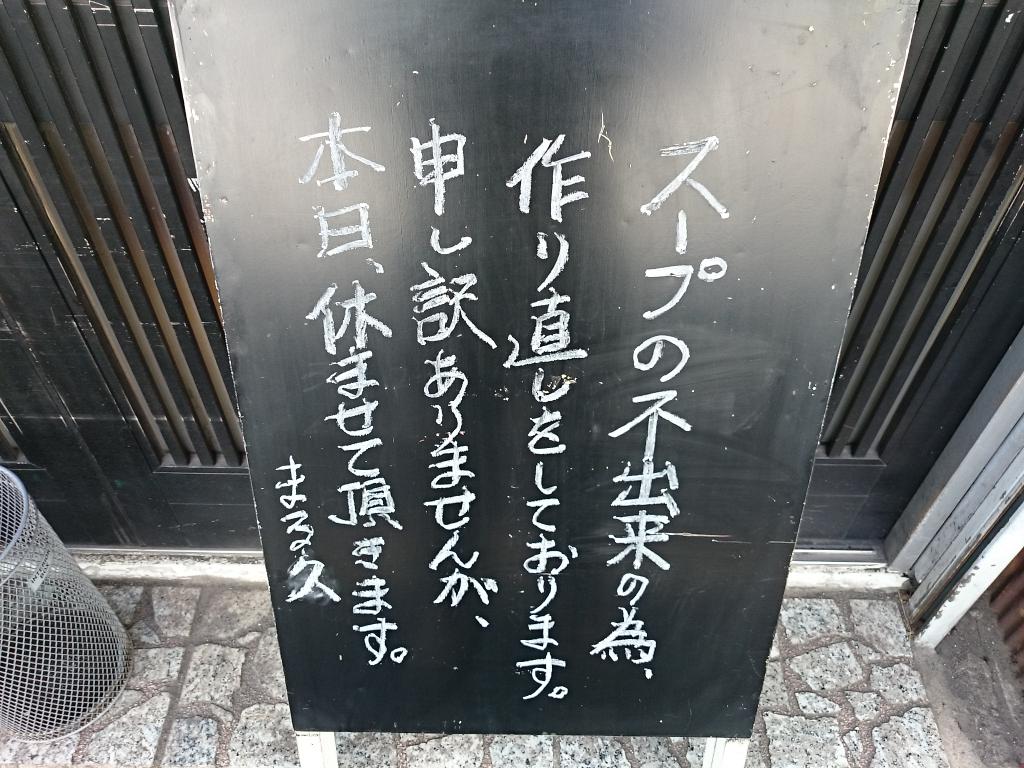 スープの不出来の為、
作り直しをしております。
申し訳ありませんが、
本日、休ませて頂きます。
まる久